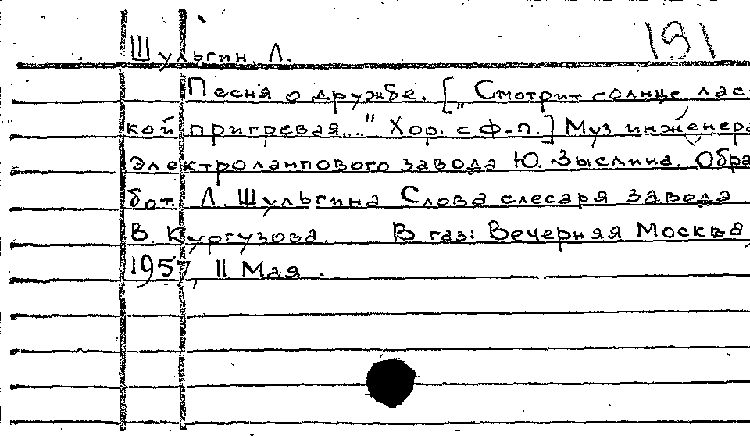 191
Шульгин Л.
Песня о дружбе. ["Смотрит солнце лас
кой пригревая..." Хор. с ф-п.] Муз инженера
Электролампового завода Ю. Зыслина. Обра
бот. Л. Шульгина Слова слесаря завода
В. Кургузова. В газ: Вечерняя Москва,
1957, 11 Мая.